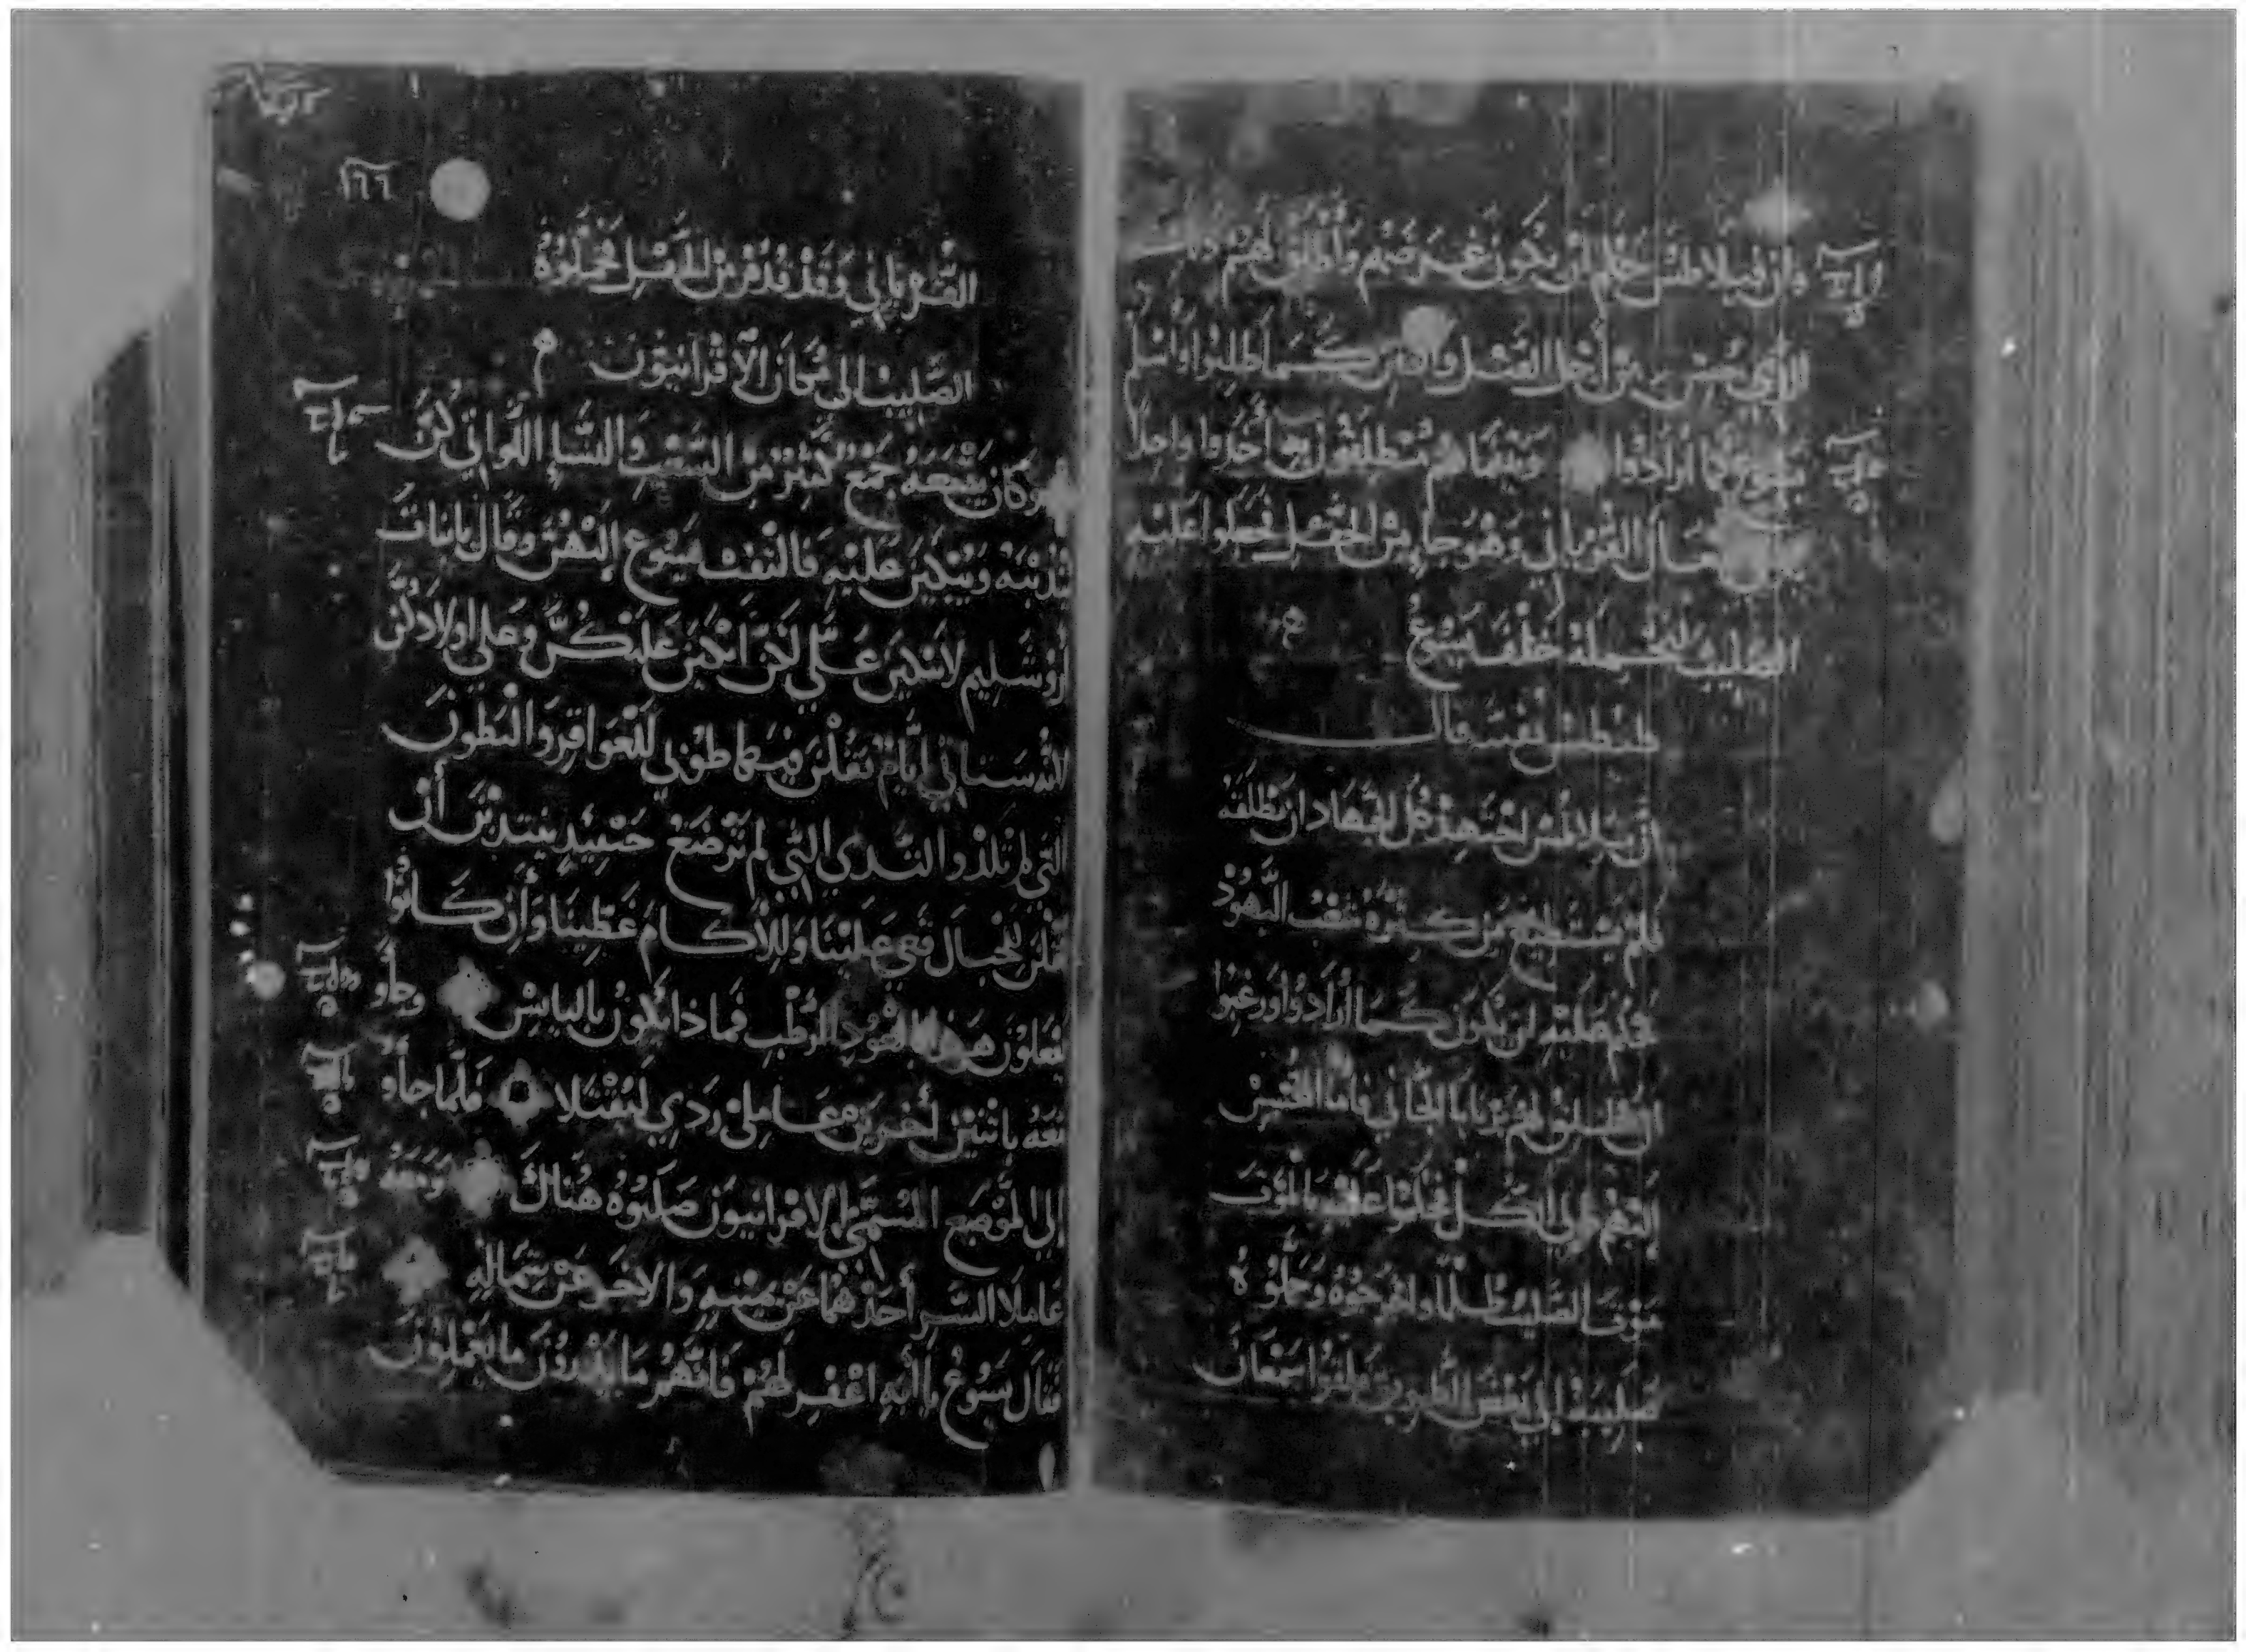 وان فيلاطس حكم ان يكون غرضهم وأطلق لهم
الذي حبس من أجل القتل والفتن كما طلبوا وأسلم
يسوع كما أرادوا وبينما هم منطلقون به أخذوا واحدا
سمعان القرياني وهو جاء من الحقل فحملوا عليه
الصليب ليحمله خلف يسوع
طبطس نفسه قال
ان بيلاطس اجتهد كل الجهاد ان يطلقه
فلم يستطيع من كثرة شغب اليهود
فحكم عليه ان يكون كما أرادوا ورغبوا
ان يطلق لهم بارابا الجاني فاما المحسن
اليهم والى الكل فحكموا عليه بالموت
موت الصليب ظلما واخرجوه وحملوه
صليبه الى بعض الطريق ولقوا سمعان
١٦٦
القرياني وقد قدم من الحقل فحملوه
الصليب الى مكان الاقرانيون
وكان يتبعه جمع كثير من الشعب والنساء اللواتي كن
يندبنه ويبكين عليه فالتفت يسوع إليهن وقال يا بنات
أورشليم لا تبكين علي لكن ابكين عليكن وعلى اولادكن
لانه ستاتي أيام تقلن فيها طوبى للعواقر والبطون
التي لم تلد والثدي التي لم ترضع حينئذ يبتدين أن
تقلن للجبال قعي علينا وللأكام غطينا وان كانوا
يفعلون هذا بالعود الرطب فماذا يكون باليابس وجاؤ
معه باثنين أخرين عاملي ردي ليقتلا فلما جاؤ
إلى الموضع المسمى الاقرانيون صلبوه هناك ومعه
عاملا الشر أحدهما عن يمينه والاخر عن شماله
فقال يسوع يا أبه اغفر لهم فانهم ما يدرون ما يعملون